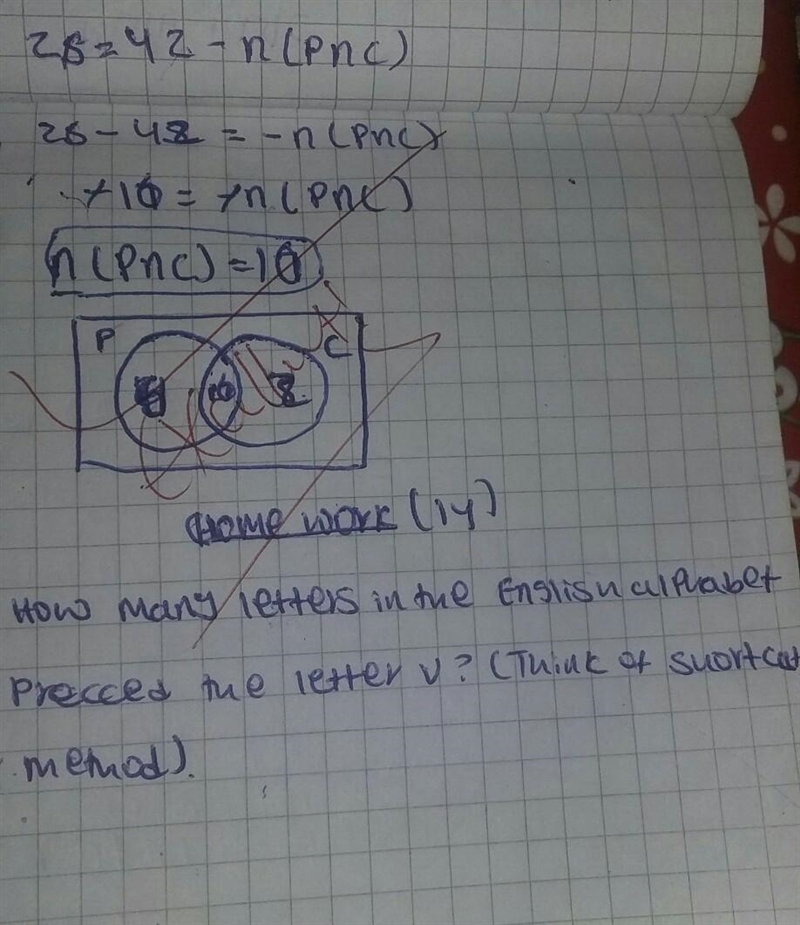 26 = 42 - n(PnC)
26 - 42 = -n(PnC)
+16 = +n(PnC)
n(PnC) = 16
P C
16
Home work (14)
How many letters in the English alphabet
Precced the letter v? (Think of shortcut
method).